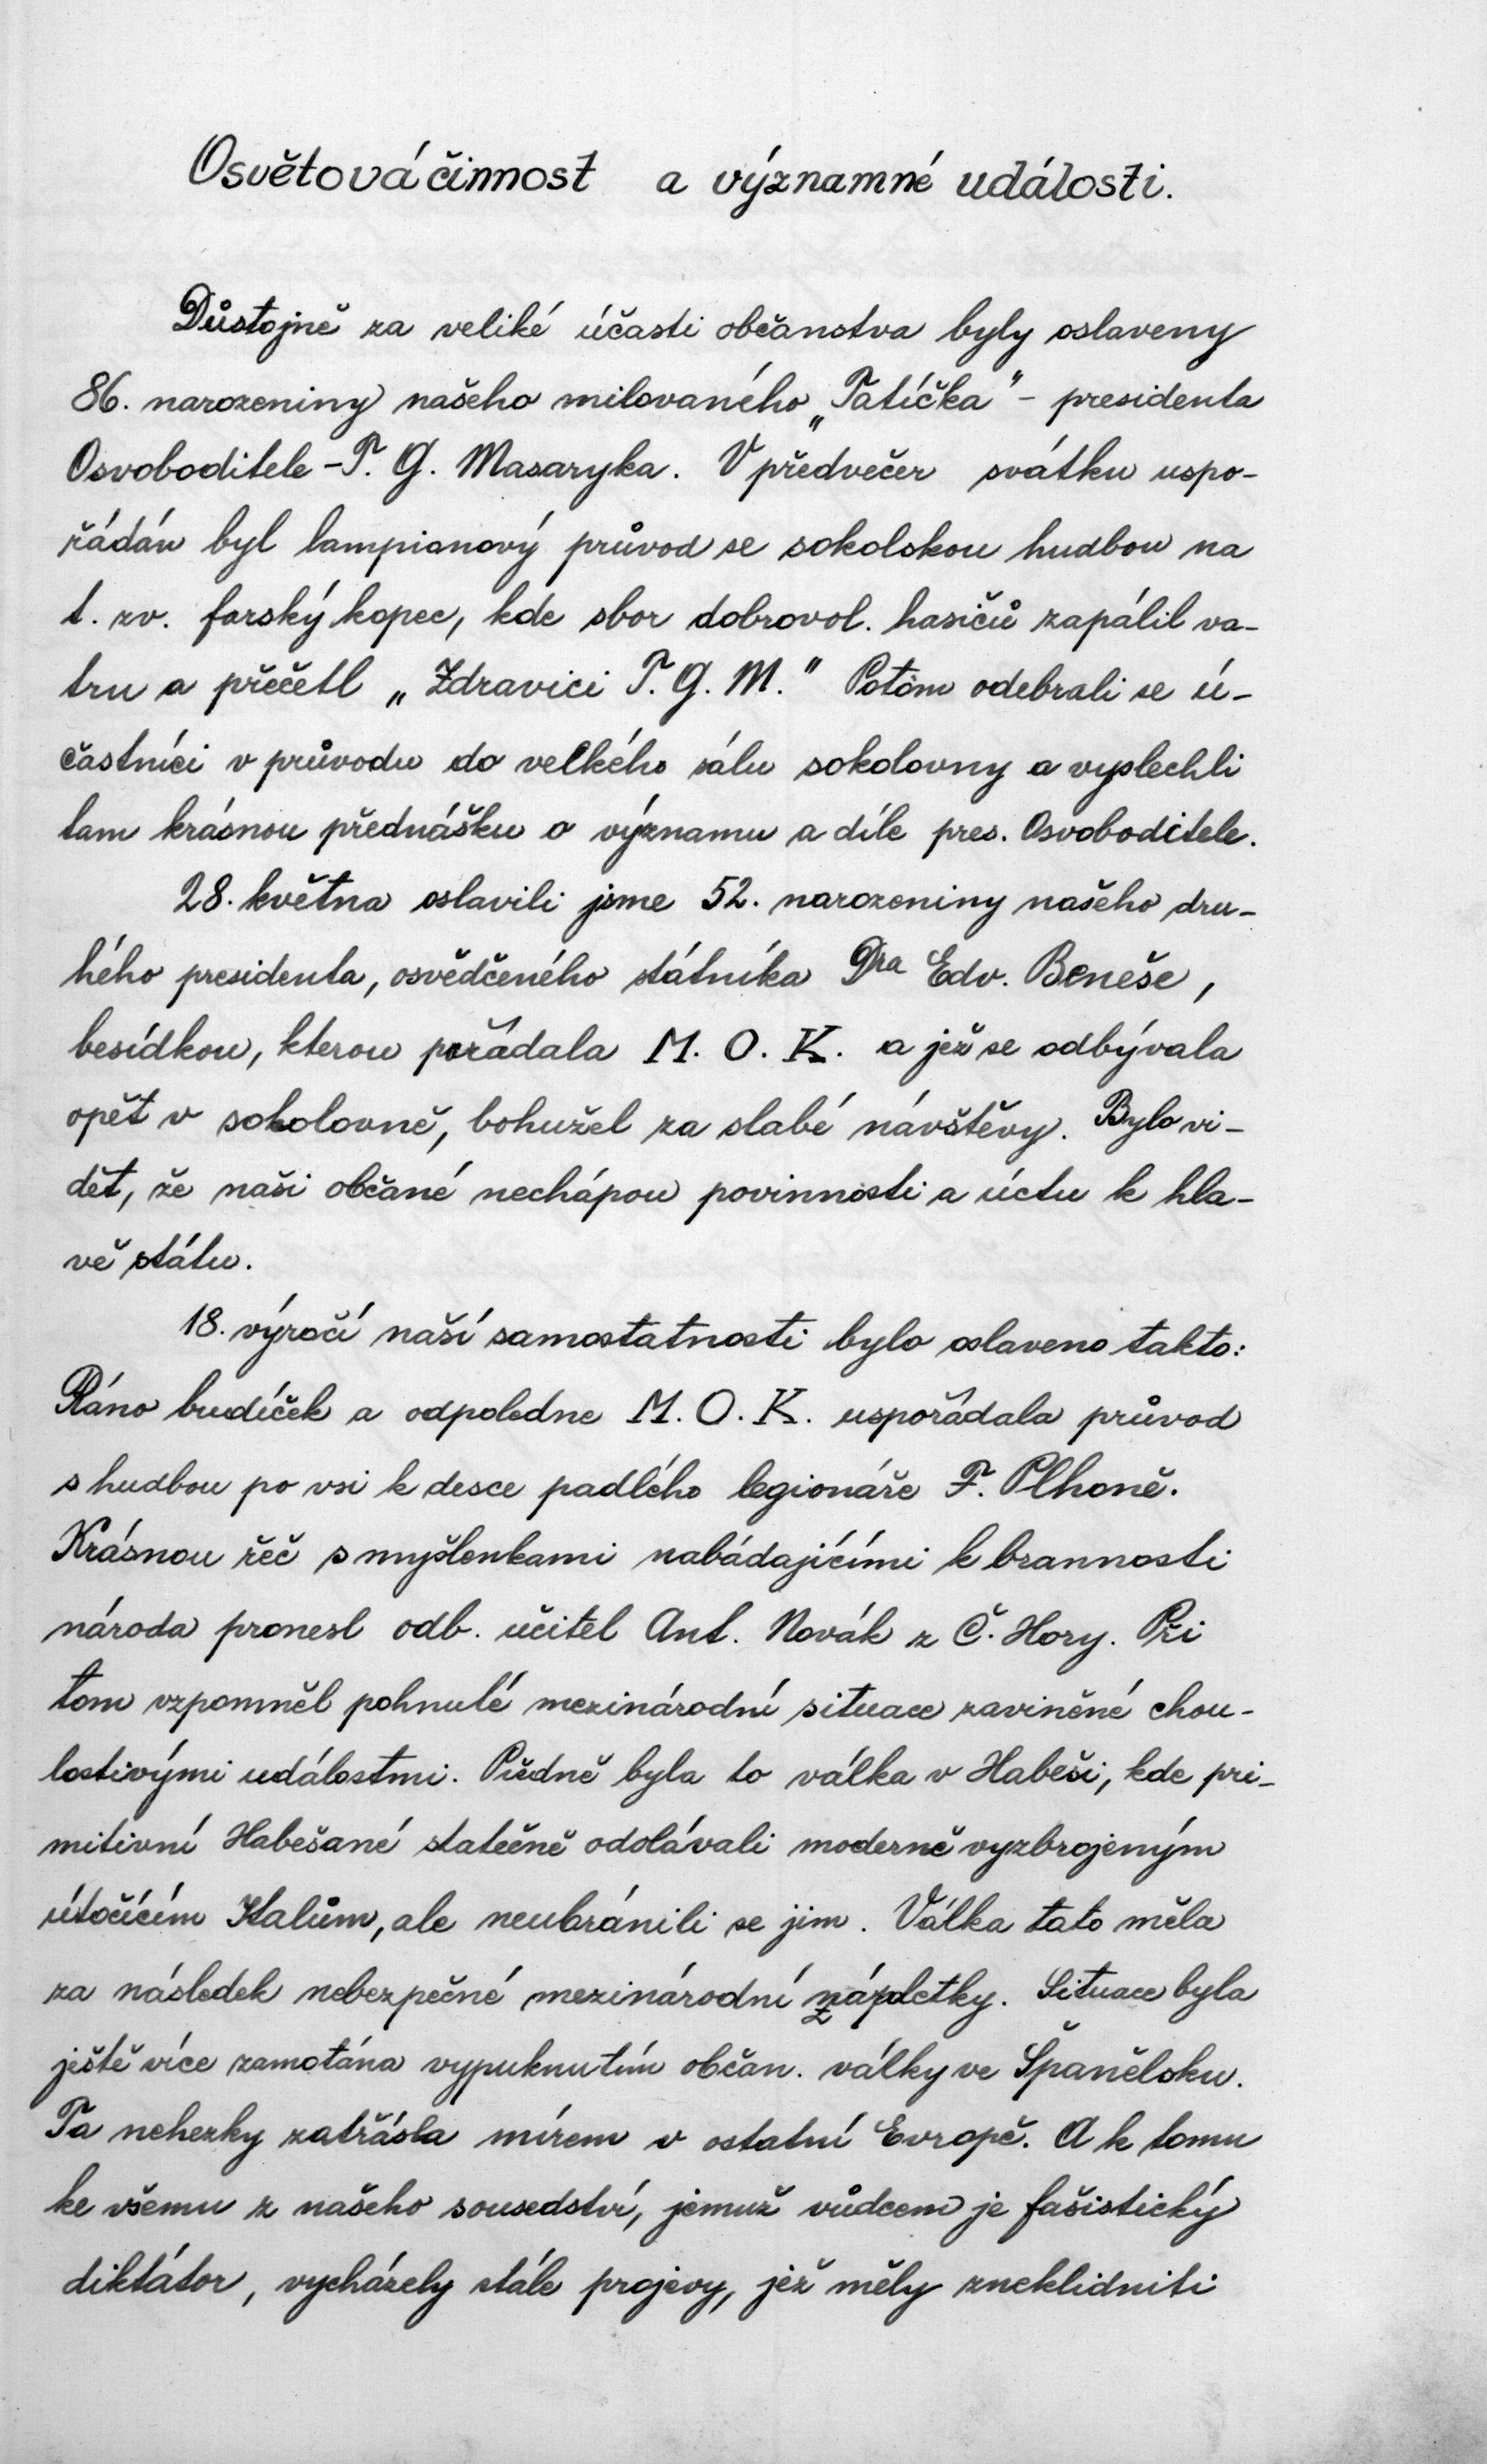 Osvětová činnost a významné události.
Důstojně za veliké účasti občanstva byly oslaveny
86. narozeniny našeho milovaného „Tatíčka" - presidenta
Osvoboditele - T. G. Masaryka. V předvečer svátku uspo-
řádán byl lampionový průvod se sokolskou hudbou na
t. zv. farský kopec, kde sbor dobrovol. hasičů zapálil va-
tru a přečetl „Zdravici T. G. M." Potom odebrali se ú-
častníci v průvodu do velkého sálu sokolovny a vyslechli
tam krásnou přednášku o významu a díle pres. Osvoboditele.
28. května oslavili jsme 52. narozeniny našeho dru-
hého presidenta, osvědčeného státníka Dra Edv. Beneše,
besídkou, kterou pořádala M. O. K. a jež se odbývala
opět v sokolovně, bohužel za slabé návštěvy. Bylo vi-
dět, že naši občané nechápou povinnosti a úctu k hla-
vě státu.
18. výročí naší samostatnosti bylo oslaveno takto:
Ráno budíček a odpoledne M. O. K. uspořádala průvod
s hudbou po vsi k desce padlého legionáře F. Plhoně.
Krásnou řeč s myšlenkami nabádajícími k brannosti
národa pronesl odb. učitel Ant. Novák z Č. Hory. Při
tom vzpomněl pohnulé mezinárodní situace zaviněné chou-
lostivými událostmi. Předně byla to válka v Habeši, kde pri-
mitivní Habešané statečně odolávali moderně vyzbrojeným
útočícím Italům, ale neubránili se jim. Válka tato měla
za následek nebezpečné mezinárodní zápletky. Situace byla
ještě více zamotána vypuknutím občan. války ve Španělsku.
Ta nehezky zatřásla mírem v ostatní Evropě. A k tomu
ke všemu z našeho sousedství, jemuž vůdcem je fašistický
diktátor, vycházely stále projevy, jež měly zneklidniti